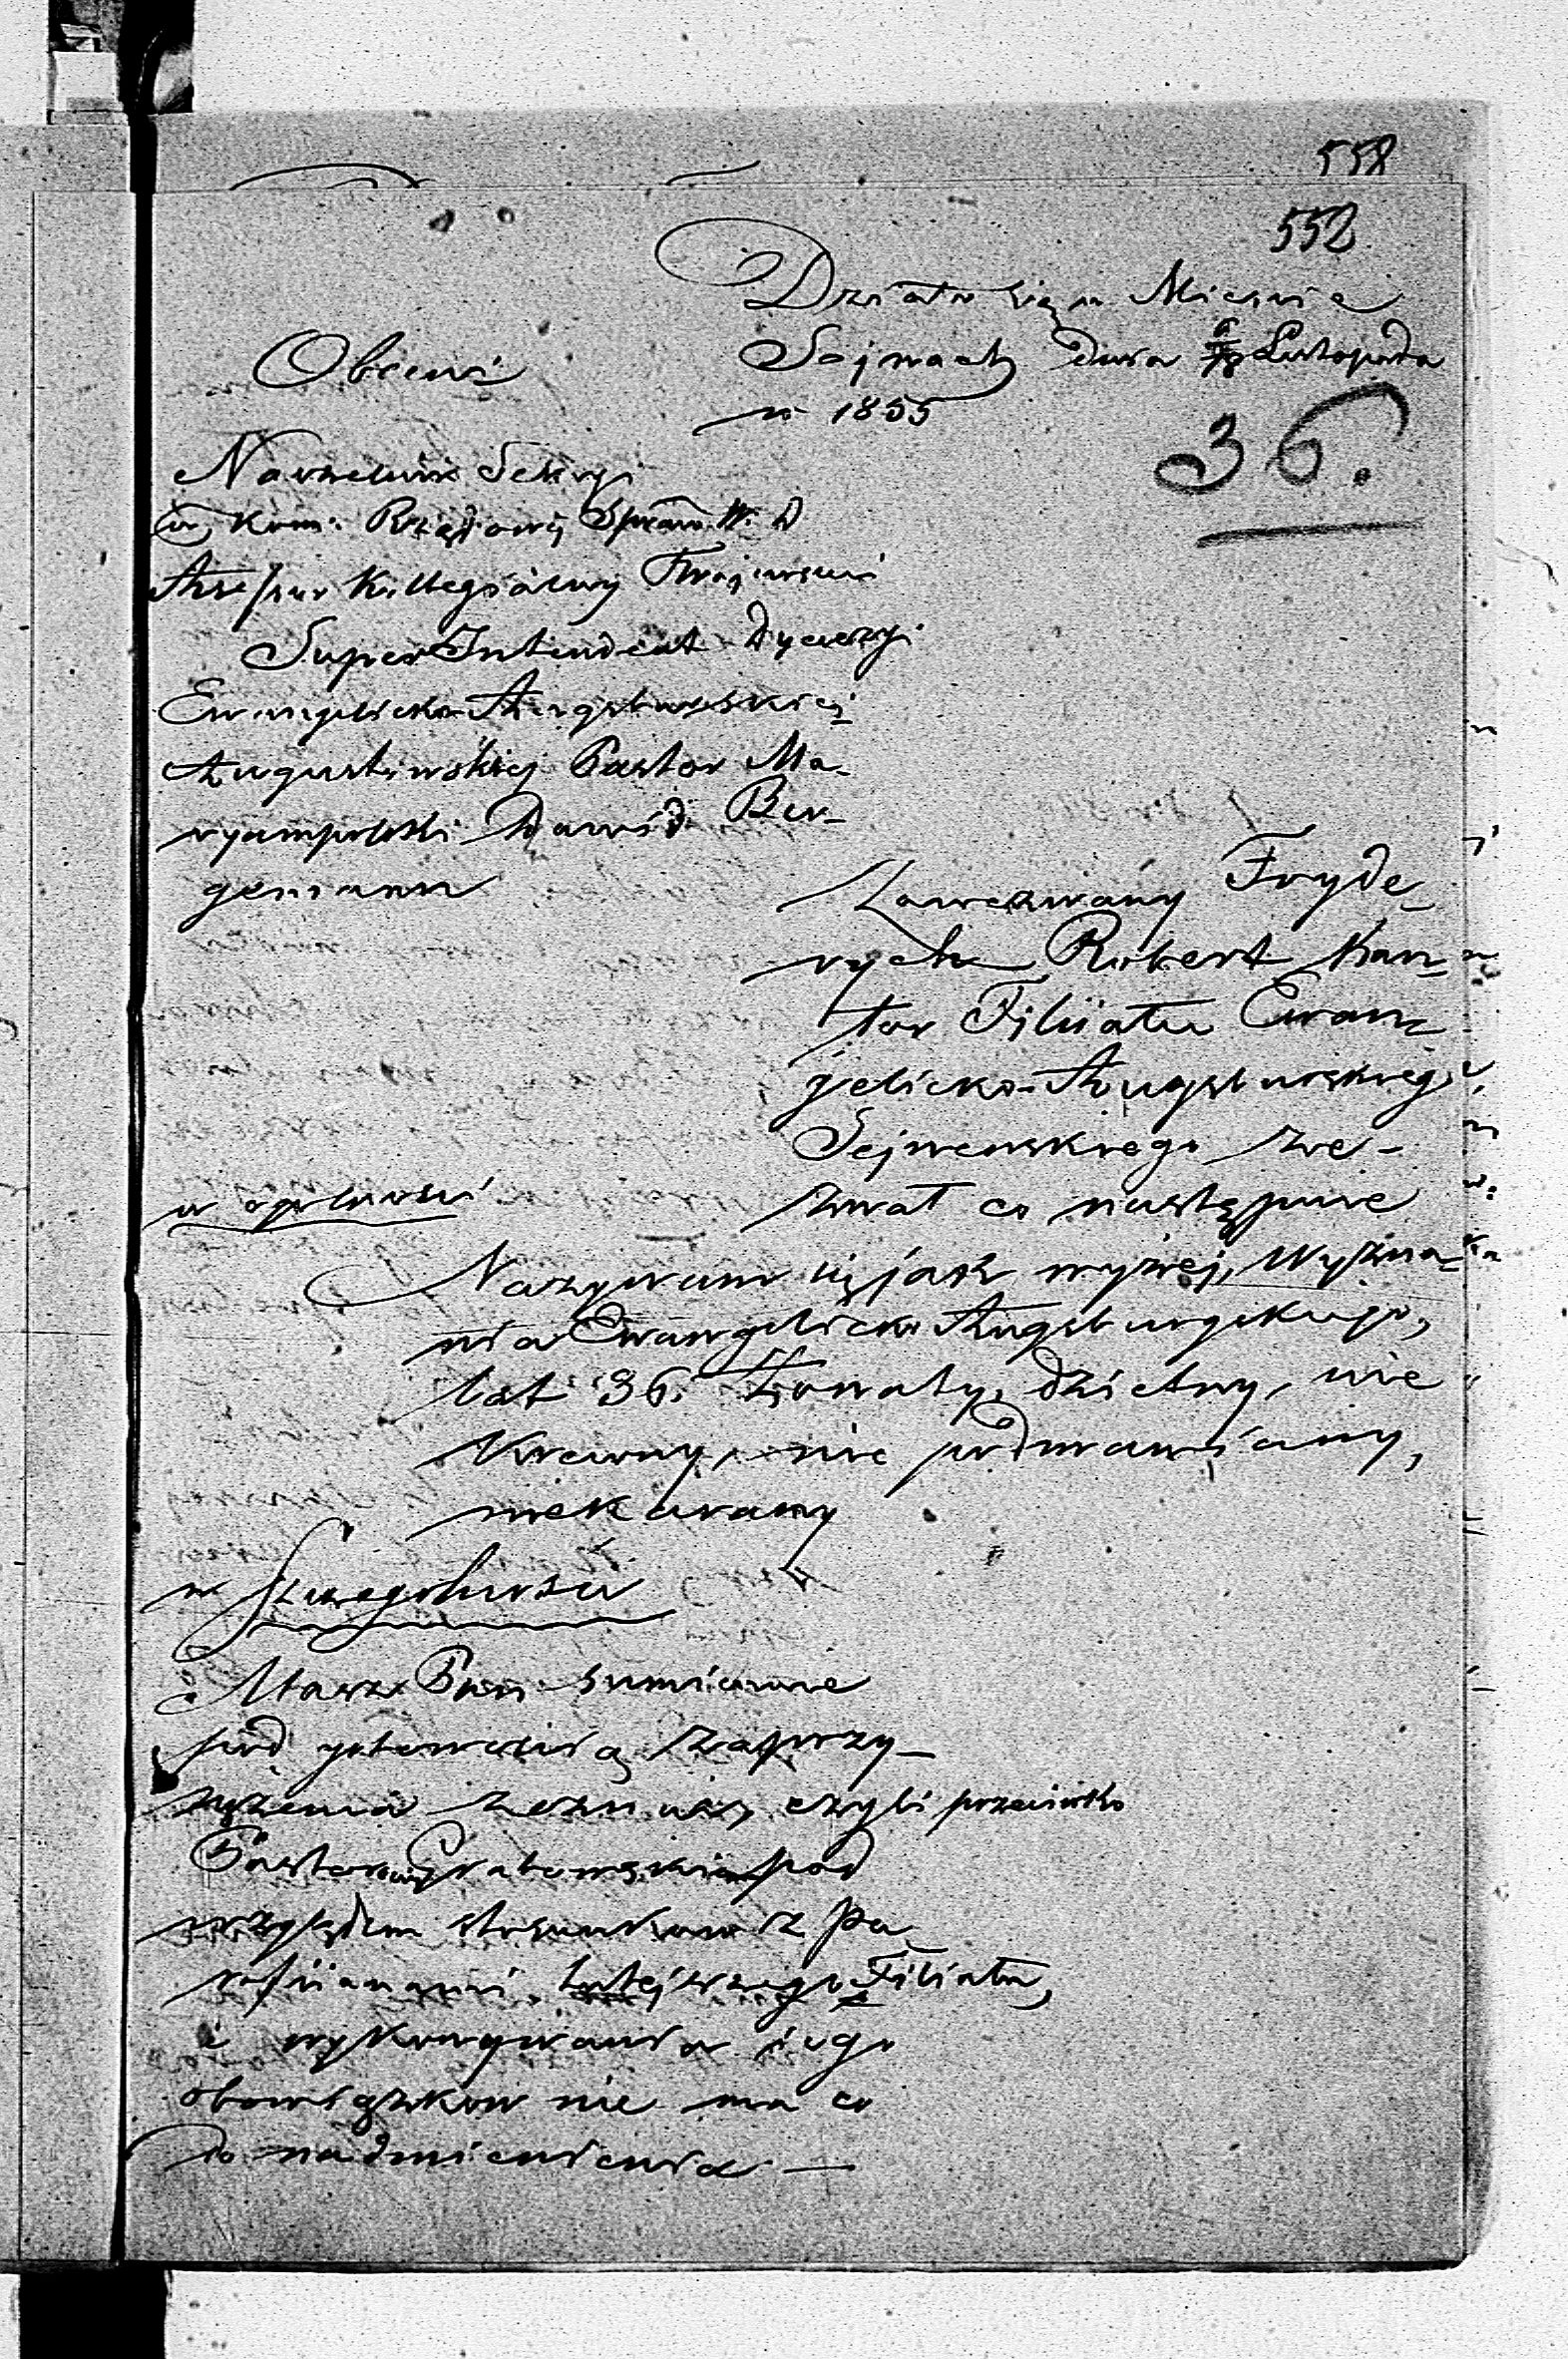 558
552
Działo się w Mieście
Sejnach dnia 6/18 Listopada
r. 1855
36.
Obecni
Naczelnik Sekcyi
w Kom: Rządowej Spraw W. D
Assessor Kollegialny
Super Intendent Dyecezyi
Ewangelicko-Augsburskiej
Augustowskiej Pastor Ma-
ryampolski Dawid Ber-
gemann
Zawezwany Fryde-
rych Robert Kan-
tor Filiiału Ewan-
gelicko-Augsburskiego
Sejnenskiego ze-
znał co następuie
w ogolności
Nazywam się jak wyżej, Wyzna-
nia Ewangelicko Augsburgskiego,
lat 36. Żonaty, dzietny, nie
Krewny, nie podmawiany,
niekarany
w Szczegolności
Masz Pan sumiennie
pod gotowością zaprzy-
siężenia zeznać, czyli przeciwko
Pastorowi Grabowskiemu pod
względem stosunkow z pa-
rafiianami tutejszego Filiału,
i wykonywania iego
obowiązkow nie ma co
do nadmienienia —